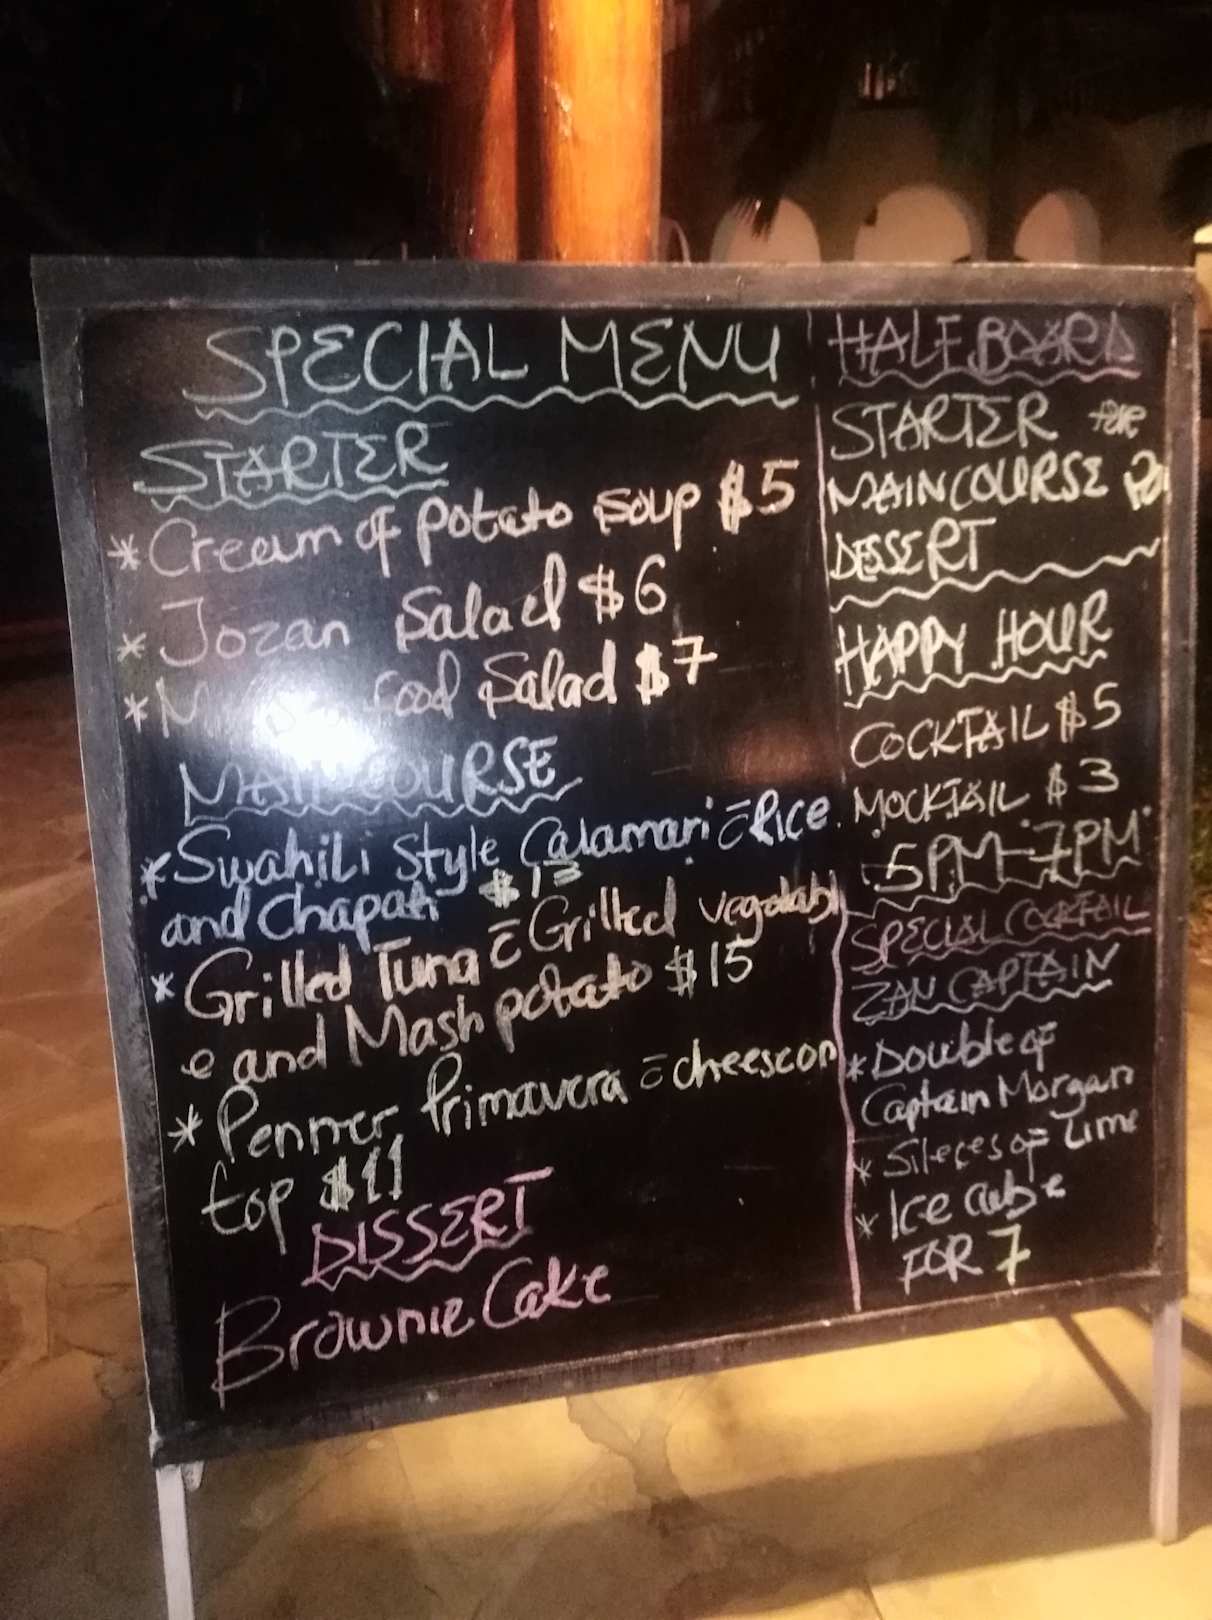 SPECIAL MENU
STARTER
* Cream of potato soup $5
* Jozan Salad $6
* food Salad $7
MAIN COURSE
* Swahili Style Calamari c̄ Rice
and Chapati $13
* Grilled Tuna c̄ Grilled vegetabl
e and Mash potato $15
* Penner Primavera c̄ cheescon
top $11
DISSERT
Brownie Cake
HALF BOARD
STARTER
MAINCOURSE
DESSERT
HAPPY HOUR
COCKTAIL $5
MOCKTAIL $3
5PM-7PM
SPECIAL COCKTAIL
ZAN CAPTAIN
* Double of
Captain Morgan
* Sileces of Lime
* Ice cube
FOR 7